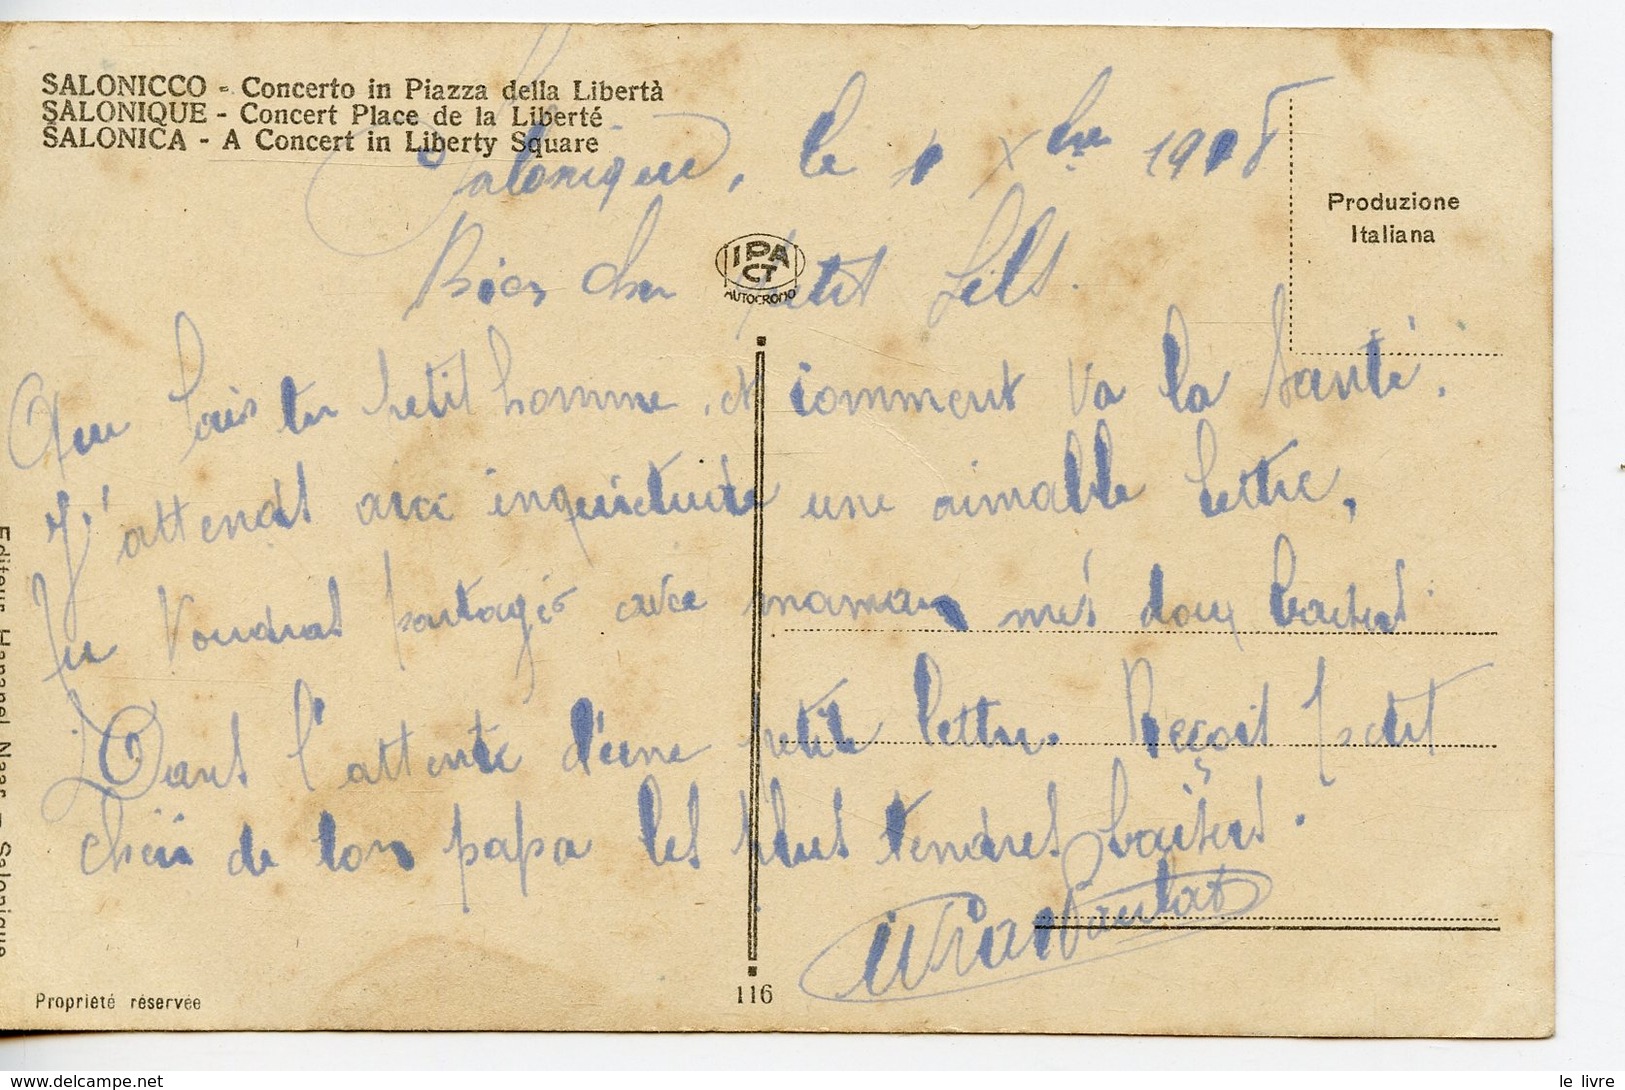 SALONICCO - Concerto in Piazza della Libertà
SALONIQUE - Concert Place de la Liberté
SALONICA - A Concert in Liberty Square
Salonique, le 1 Xbre 1918
Produzione
Italiana
IPA
CT
AUTOCROMO
Bien cher petit fils.
Que fais tu petit homme, et comment va la santé.
J'attends avec inquietude une aimable lettre,
tu voudras partagés avec maman mes doux baisers.
Dans l'attente d'une petite lettre. Reçoit petit
chéri de ton papa les plus tendres baisers.
Editeur Hananel Naar - Salonique
Propriété réservée
116
le livre